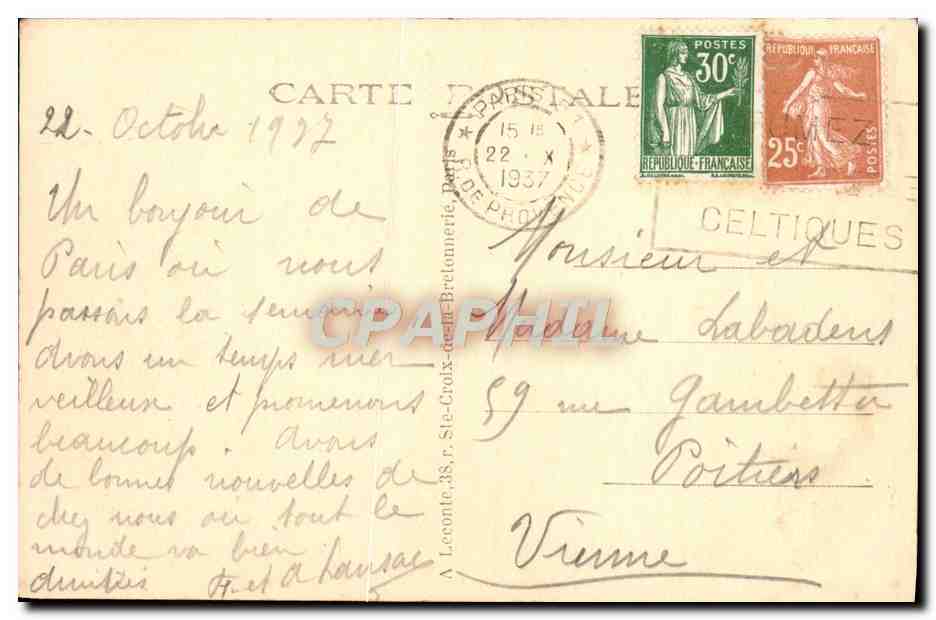 CARTE POSTALE
22. Octobre 1937
Un bonjour de
Paris où nous
passons la semaine
avons un temps mer
veilleux et promenons
beaucoup. Avons
de bonnes nouvelles de
chez nous ou tout le
monde va bien
amitiés
A Leconte, 38, r. Ste-Croix-de-la-Bretonnerie, Paris
PARIS
15 H
22 · X
1937
R. DE PROVENCE
POSTES
30c
REPUBLIQUE-FRANÇAISE
REPUBLIQUE FRANÇAISE
25c
POSTES
CELTIQUES
Monsieur et
Madame Labadens
59 rue Gambetta
Poitiers
Vienne
CPAPHIL